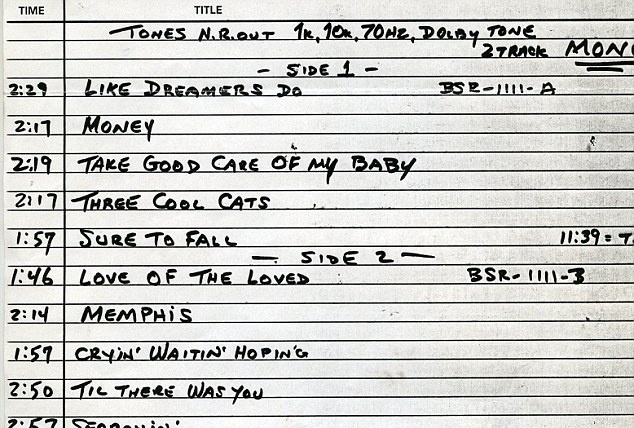 TIME TITLE
TONES N.R.OUT 1K, 10K, 70HZ, DOLBY TONE
2 TRACK MONO
- SIDE 1 -
2:29 LIKE DREAMERS DO BSR-1111-A
2:17 MONEY
2:19 TAKE GOOD CARE OF MY BABY
2:17 THREE COOL CATS
1:57 SURE TO FALL 11:39 = T
- SIDE 2 -
1:46 LOVE OF THE LOVED BSR-1111-B
2:14 MEMPHIS
1:57 CRYIN' WAITIN' HOPIN'G
2:50 TIL THERE WAS YOU
2:57 SEARCHIN'